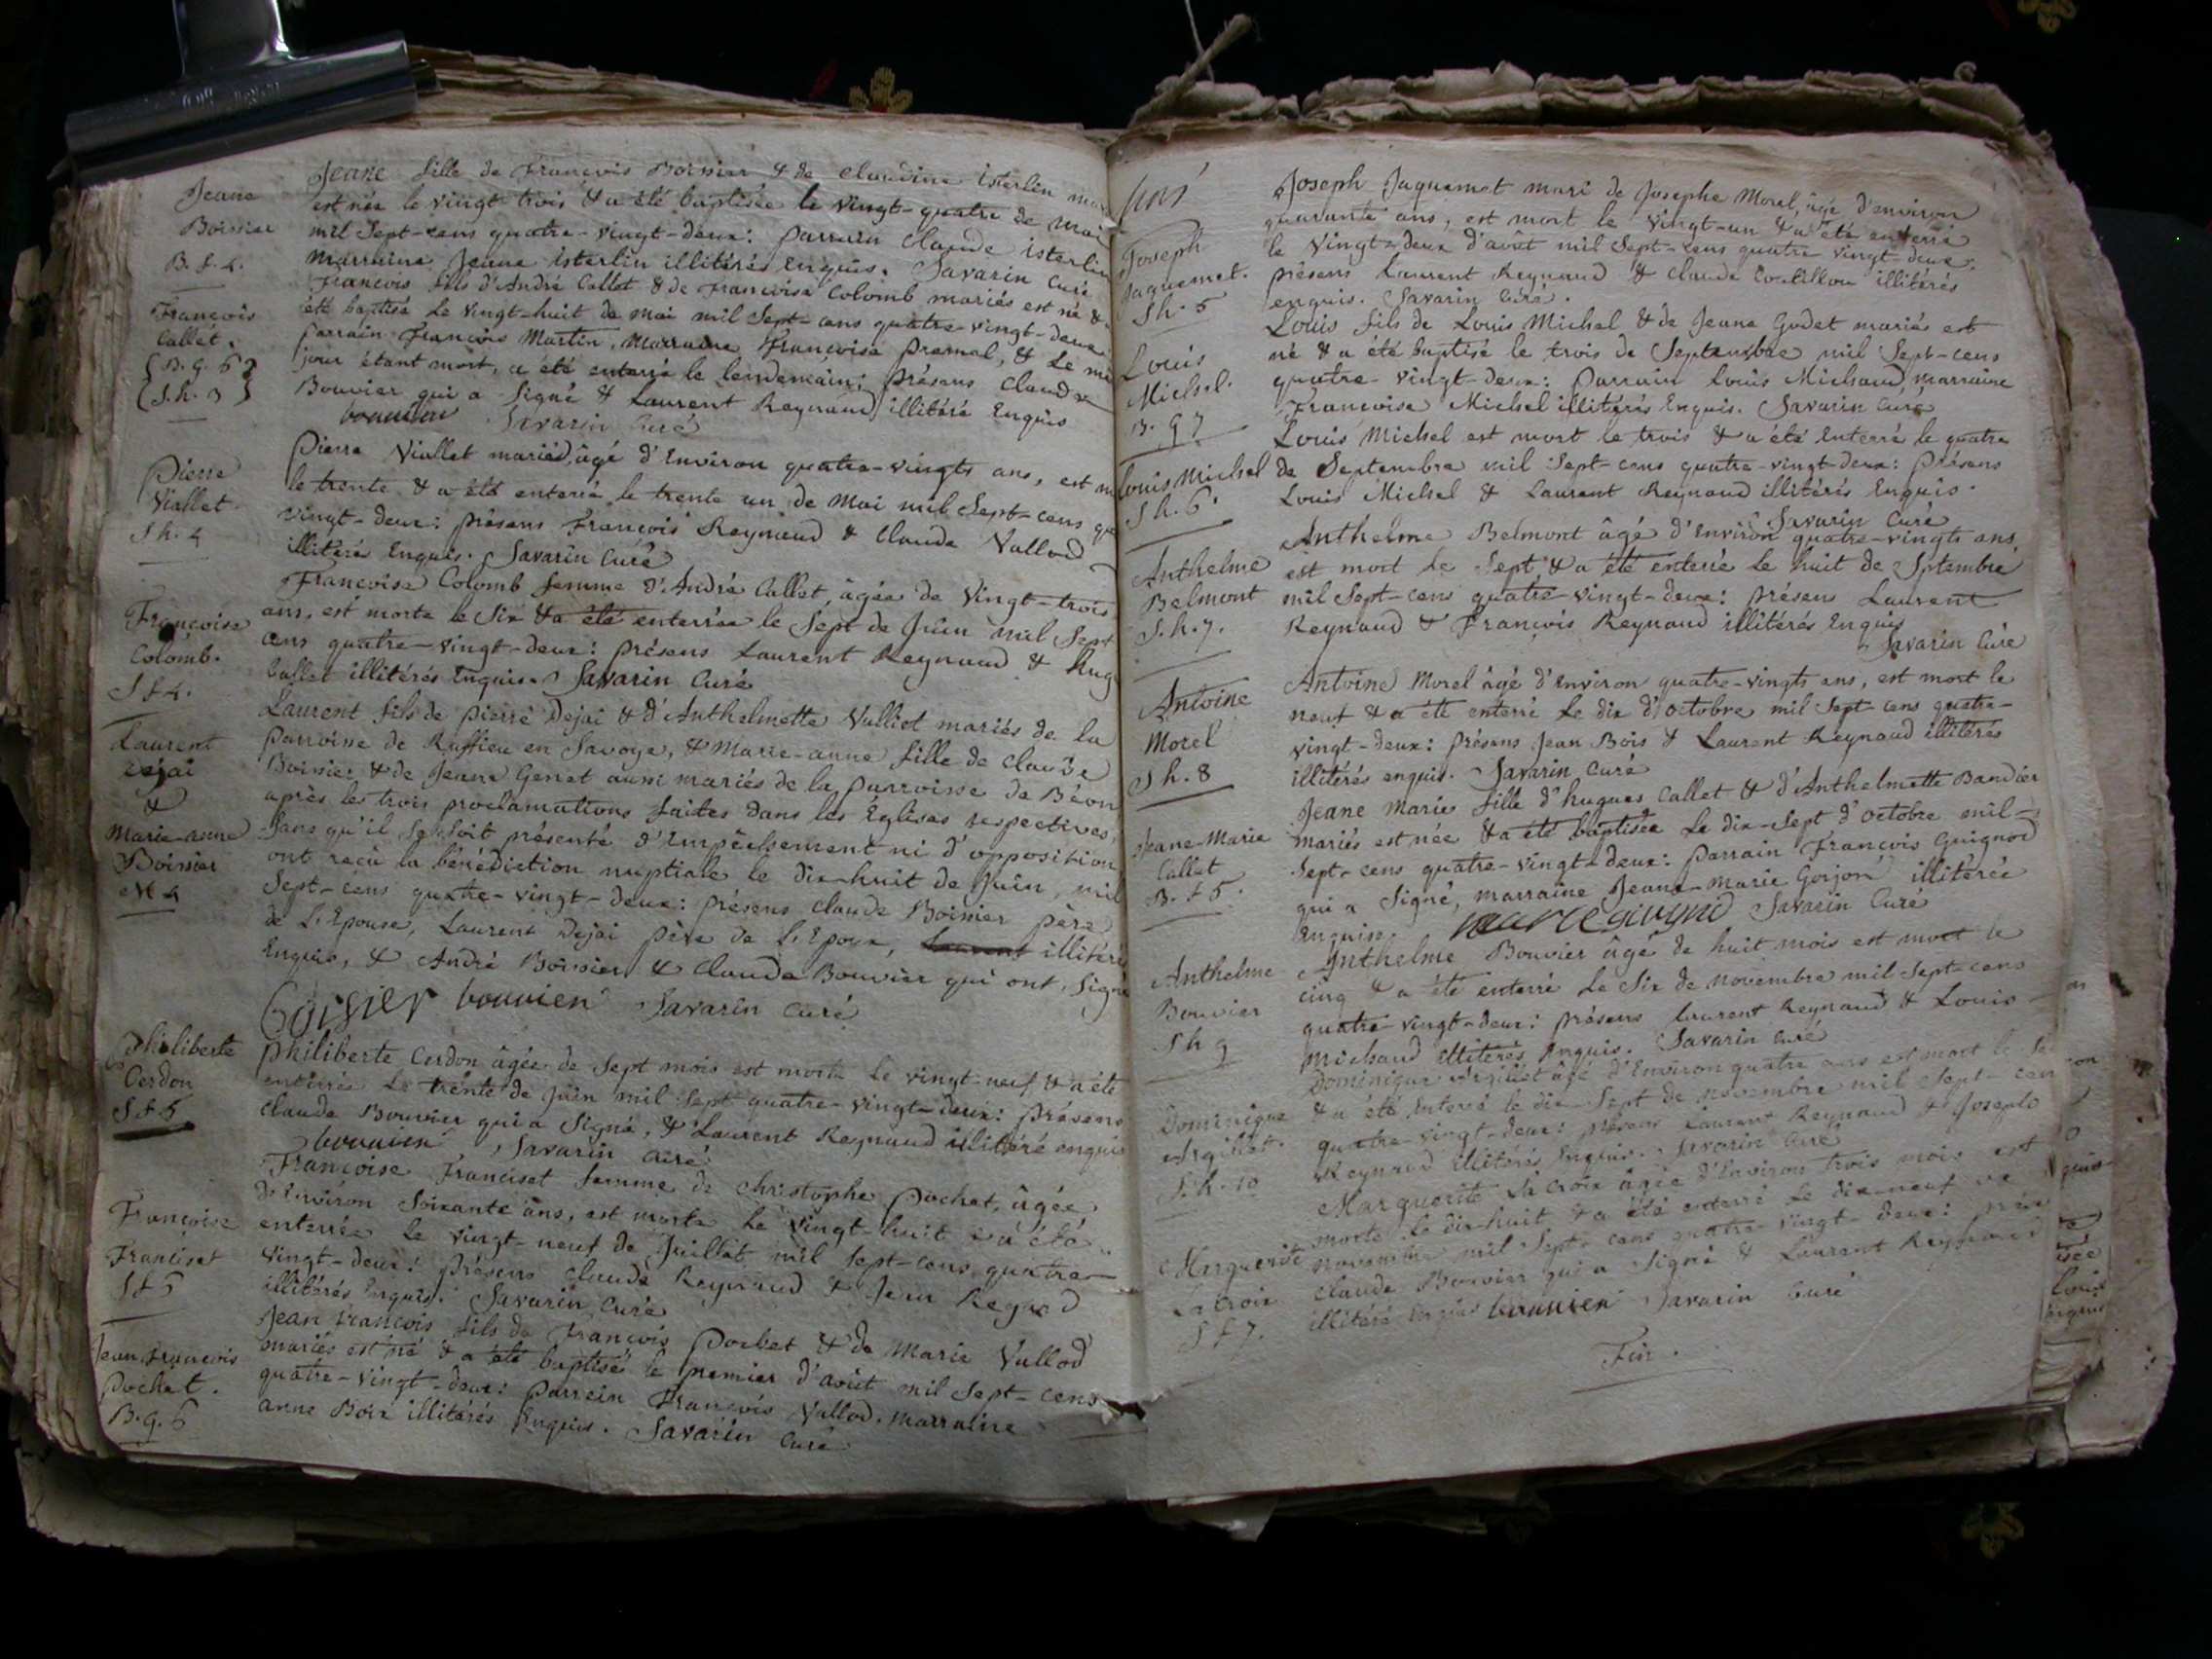 Jeane
Boissier
B. f. 4.
Jeane fille de François Boissier & de Claudine isterlin
est née le vingt-trois & a été baptisée le vingt-quatre de mai
mil Sept-cens quatre-vingt-deux: parrain Claude isterlin
marraine Jeane isterlin illitérés Enquis. Savarin Curé
François
Callet.
B. g. 6
S. h. 3
François fils d'André Callet & de Françoise Colomb mariés est né &
été baptisé le vingt-huit de mai mil Sept-cens quatre-vingt-deux
parrain François Martin, marraine Françoise premel, & le
jour étant mort, a été enterré le lendemain; présens Claude
Bouvier qui a Signé & Laurent Reynaud illitéré Enquis
bouuien Savarin Curé
Pierre
Viallet
S h. 4
Pierre Viallet mariéd, âgé d'Environ quatre-vingts ans, est
le trente & a été enterré le trente un de Mai mil Sept-cens
vingt-deux: présens François Reynaud & Claude Vallod
illitérés Enquis. Savarin Curé
Françoise
Colomb.
S f 4.
Françoise Colomb femme d'André Callet, âgée de vingt-trois
ans, est morte le Six & a été enterrée le Sept de Juin mil Sept
cens quatre-vingt-deux: présens Laurent Reynaud & hug
Callet illitérés Enquis. Savarin Curé
Laurent
Dejai
&
Marie-anne
Boissier
M 4
Laurent fils de pierre Dejai & d'Anthelmette Valliet mariés de la
parroisse de Ruffieu en Savoye, & Marie-anne fille de Claude
Boissier & de Jeane Genet aussi mariés de la parroisse de Béon
après les trois proclamations faites dans les Églises respectives,
Sans qu'il se soit présenté d'Empêchement ni d'opposition
ont reçu la bénédiction nuptiale le dix-huit de Juin, mil
Sept-cens quatre-vingt-deux: présens Claude Boissier père
de l'Epouse, Laurent Dejai père de l'Epoux, illitérés
Enquis, & André Boissier & Claude Bouvier qui ont Signé
Boissier bouuien Savarin Curé
Philiberte
Cerdon
S f 5
Philiberte Cerdon âgée de Sept mois est morte le vingt-neuf & a été
enterrée le trente de Juin mil Sept quatre-vingt-deux: présens
Claude Bouvier qui a Signé, & Laurent Reynaud illitéré enquis
bouuien Savarin Curé
Françoise
Franciset
S f 6
Françoise Franciset femme de Christophe Pochet, âgée
d'Environ Soixante ans, est morte le vingt-huit & a été
enterrée le vingt-neuf de Juillet mil Sept-cens quatre-
vingt-deux: présens Claude Reynaud & Jean Reynod
illitérés Enquis. Savarin Curé
Jean François
Pochet.
B. g. 6
Jean François fils de François Pochet & de Marie Vallod
mariés est né & a été baptisé le premier d'août mil Sept-cens
quatre-vingt-deux: parrein François Vallod, marraine
anne Boix illitérés Enquis. Savarin Curé
Joseph
Jaquemet.
S h. 5
Joseph Jaquemet mari de Josephe Morel, âgé d'environ
quarante ans, est mort le vingt-un & a été enterré
le vingt-deux d'août mil Sept-cens quatre vingt-deux.
présens Laurent Reynaud & Claude Cotillon illitérés
enquis. Savarin Curé.
Louis
Michel.
B. g 7
Louis fils de Louis Michel & de Jeane Godet mariés est
né & a été baptisé le trois de Septembre mil Sept-cens
quatre-vingt-deux: parrain Louis Michaud, marraine
Françoise Michel illitérés Enquis. Savarin Curé
Louis Michel
S h. 6.
Louis Michel est mort le trois & a été Enterré le quatre
de Septembre mil Sept-cens quatre-vingt-deux: présens
Louis Michel & Laurent Reynaud illitérés Enquis.
Savarin Curé
Anthelme
Belmont
S. h. 7.
Anthelme Belmont âgé d'Environ quatre-vingts ans,
est mort le Sept & a été enterré le huit de Sptembre
mil Sept-cens quatre-vingt-deux: présens Laurent
Reynaud & François Reynaud illitérés Enquis
Savarin Curé
Antoine
Morel
S h. 8
Antoine Morel âgé d'Environ quatre-vingts ans, est mort le
neuf & a été enterré le dix d'octobre mil Sept-cens quatre-
vingt-deux: présens Jean Bois & Laurent Reynaud illitérés
illitérés enquis. Savarin Curé
Jeane-Marie
Callet
B. f 5.
Jeane Marie fille d'hugues Callet & d'Anthelmette Bandier
mariés est née & a été baptisée le dix-Sept d'octobre mil-
Sept-cens quatre-vingt-deux: parrain François Guignod
qui a Signé, marraine Jeane-Marie Gorjon illitérée
Enquise. Savarin Curé
Anthelme
Bouvier
S h 9
Anthelme Bouvier âgé de huit mois est mort le
cinq & a été enterré le Six de novembre mil Sept-cens
quatre-vingt-deux: présens Laurent Reynaud & Louis
Michaud illitérés Enquis. Savarin Curé
Dominique
Argillet.
S. h. 10
Dominique Argillet âgé d'Environ quatre ans est mort le
& a été Enterré le dix-Sept de novembre mil Sept-cen
quatre-vingt-deux: présens Laurent Reynaud & Joseph
Reynaud illitérés Enquis. Savarin Curé
Marguerite
Lacroix
S f 7.
Marguerite Lacroix âgée d'Environ trois mois est
morte le dix-huit & a été enterré le dix-neuf de
novembre mil Sept-cens quatre-vingt-deux:
Claude Bouvier qui a Signé & Laurent Reynaud
illitéré Enquis bouuien Savarin Curé
Fin.